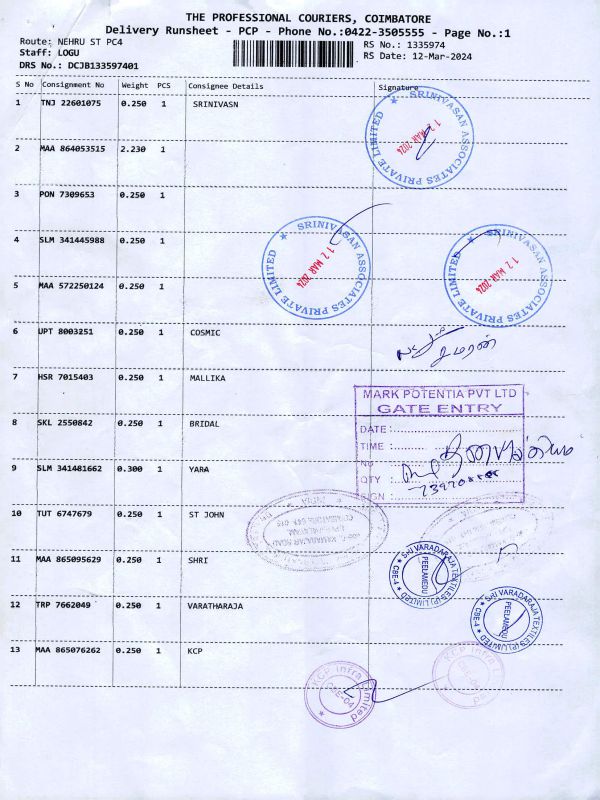 THE PROFESSIONAL COURIERS, COIMBATORE
Delivery Runsheet - PCP - Phone No.:0422-3505555 - Page No.:1
Route: NEHRU ST PC4
RS No.: 1335974
Staff: LOGU
RS Date: 12-Mar-2024
DRS No.: DCJB133597401
S No Consignment No Weight PCS Consignee Details Signature
1 TNJ 22601075 0.250 1 SRINIVASN
SRINIVASAN ASSOCIATES PRIVATE LIMITED
12 MAR 2024
2 MAA 864053515 2.230 1
3 PON 7309653 0.250 1
4 SLM 341445988 0.250 1
SRINIVASAN ASSOCIATES PRIVATE LIMITED
12 MAR 2024
SRINIVASAN ASSOCIATES PRIVATE LIMITED
12 MAR 2024
5 MAA 572250124 0.250 1
6 UPT 8003251 0.250 1 COSMIC
7 HSR 7015403 0.250 1 MALLIKA
MARK POTENTIA PVT LTD
GATE ENTRY
8 SKL 2550842 0.250 1 BRIDAL
DATE:
TIME :
NO
9 SLM 341481662 0.300 1 YARA
QTY :
SIGN :
10 TUT 6747679 0.250 1 ST JOHN
11 MAA 865095629 0.250 1 SHRI
SRI VARADARAJA TEXTILES (P) LIMITED
PEELAMEDU
CBE-4
12 TRP 7662049 0.250 1 VARATHARAJA
SRI VARADARAJA TEXTILES (P) LIMITED
PEELAMEDU
CBE-4
13 MAA 865076262 0.250 1 KCP
KCP Infra Limited